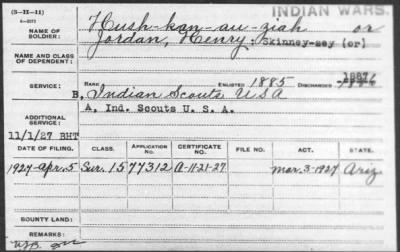 (5-III-II) INDIAN WARS.
6-2072
NAME OF SOLDIER: Hush-kon-au-ziah or
Jordan, Henry: Skinney-sey (or)
NAME AND CLASS OF DEPENDENT:
SERVICE: RANK ENLISTED 1885 DISCHARGED
B. Indian Scouts USA
ADDITIONAL SERVICE: A. Ind. Scouts U. S. A.
11/1/27 BHT
DATE OF FILING. CLASS. APPLICATION NO. CERTIFICATE NO. FILE NO. ACT. STATE.
1927-Apr.5 Sur. 1577312 A-11-21-27. Mar. 3-1927 Ariz
BOUNTY LAND:
REMARKS: